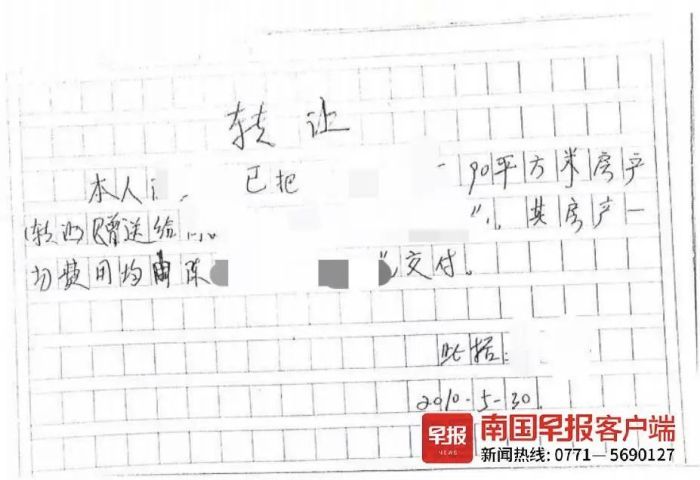 转让
本人 已把 90平方米房产
(转让)赠送给 其房产一
切费用均由陈 交付。
此据:
2010-5-30.
早报 南国早报客户端
NEWS 新闻热线: 0771—5690127